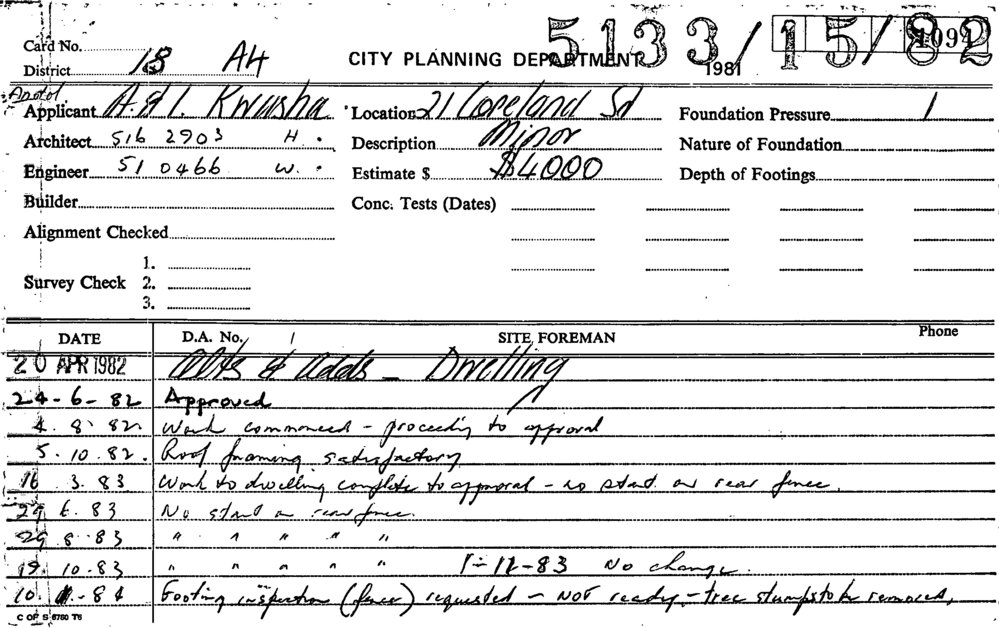 5133/15/82
1099
Card No.
District 13 A4
CITY PLANNING DEPARTMENT
1981
Applicant A & I. Kwasha
Location 21 Copeland Sd
Foundation Pressure
Architect 516 2903 H.
Description Minor
Nature of Foundation
Engineer 51 0466 W.
Estimate $ $4000
Depth of Footings
Builder
Conc. Tests (Dates)
Alignment Checked
Survey Check
1.
2.
3.
DATE D.A. No. SITE FOREMAN Phone
20 APR 1982 Alts & adds - Dwelling
24-6-82 Approved
4. 8. 82. Work commenced - proceeding to approval
5. 10. 82. Roof framing satisfactory
16 3. 83 Work to dwelling complete to approval - no start on rear fence.
29 6. 83 No start on rear fence.
29 8. 83 " " " " "
19. 10. 83 " " " " " 1-12-83 No change.
10. -84 Footing inspection (fence) requested - NOT ready - tree stumps to be removed.
C OF S 6760 T6